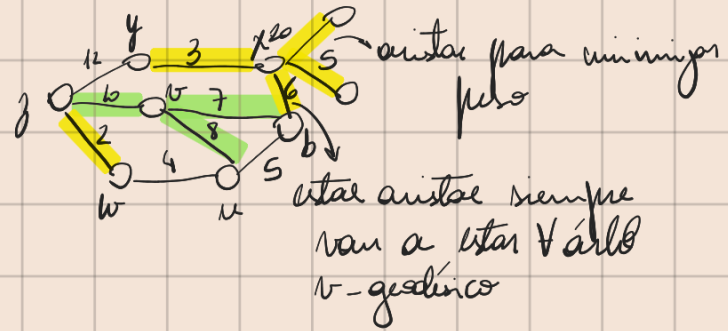 y
12
3
x
20
5
aristas para minimizar
peso
z
10
v
7
6
2
8
b
4
5
w
u
estas aristas siempre
van a estar ∀ árbol
v-geodésico